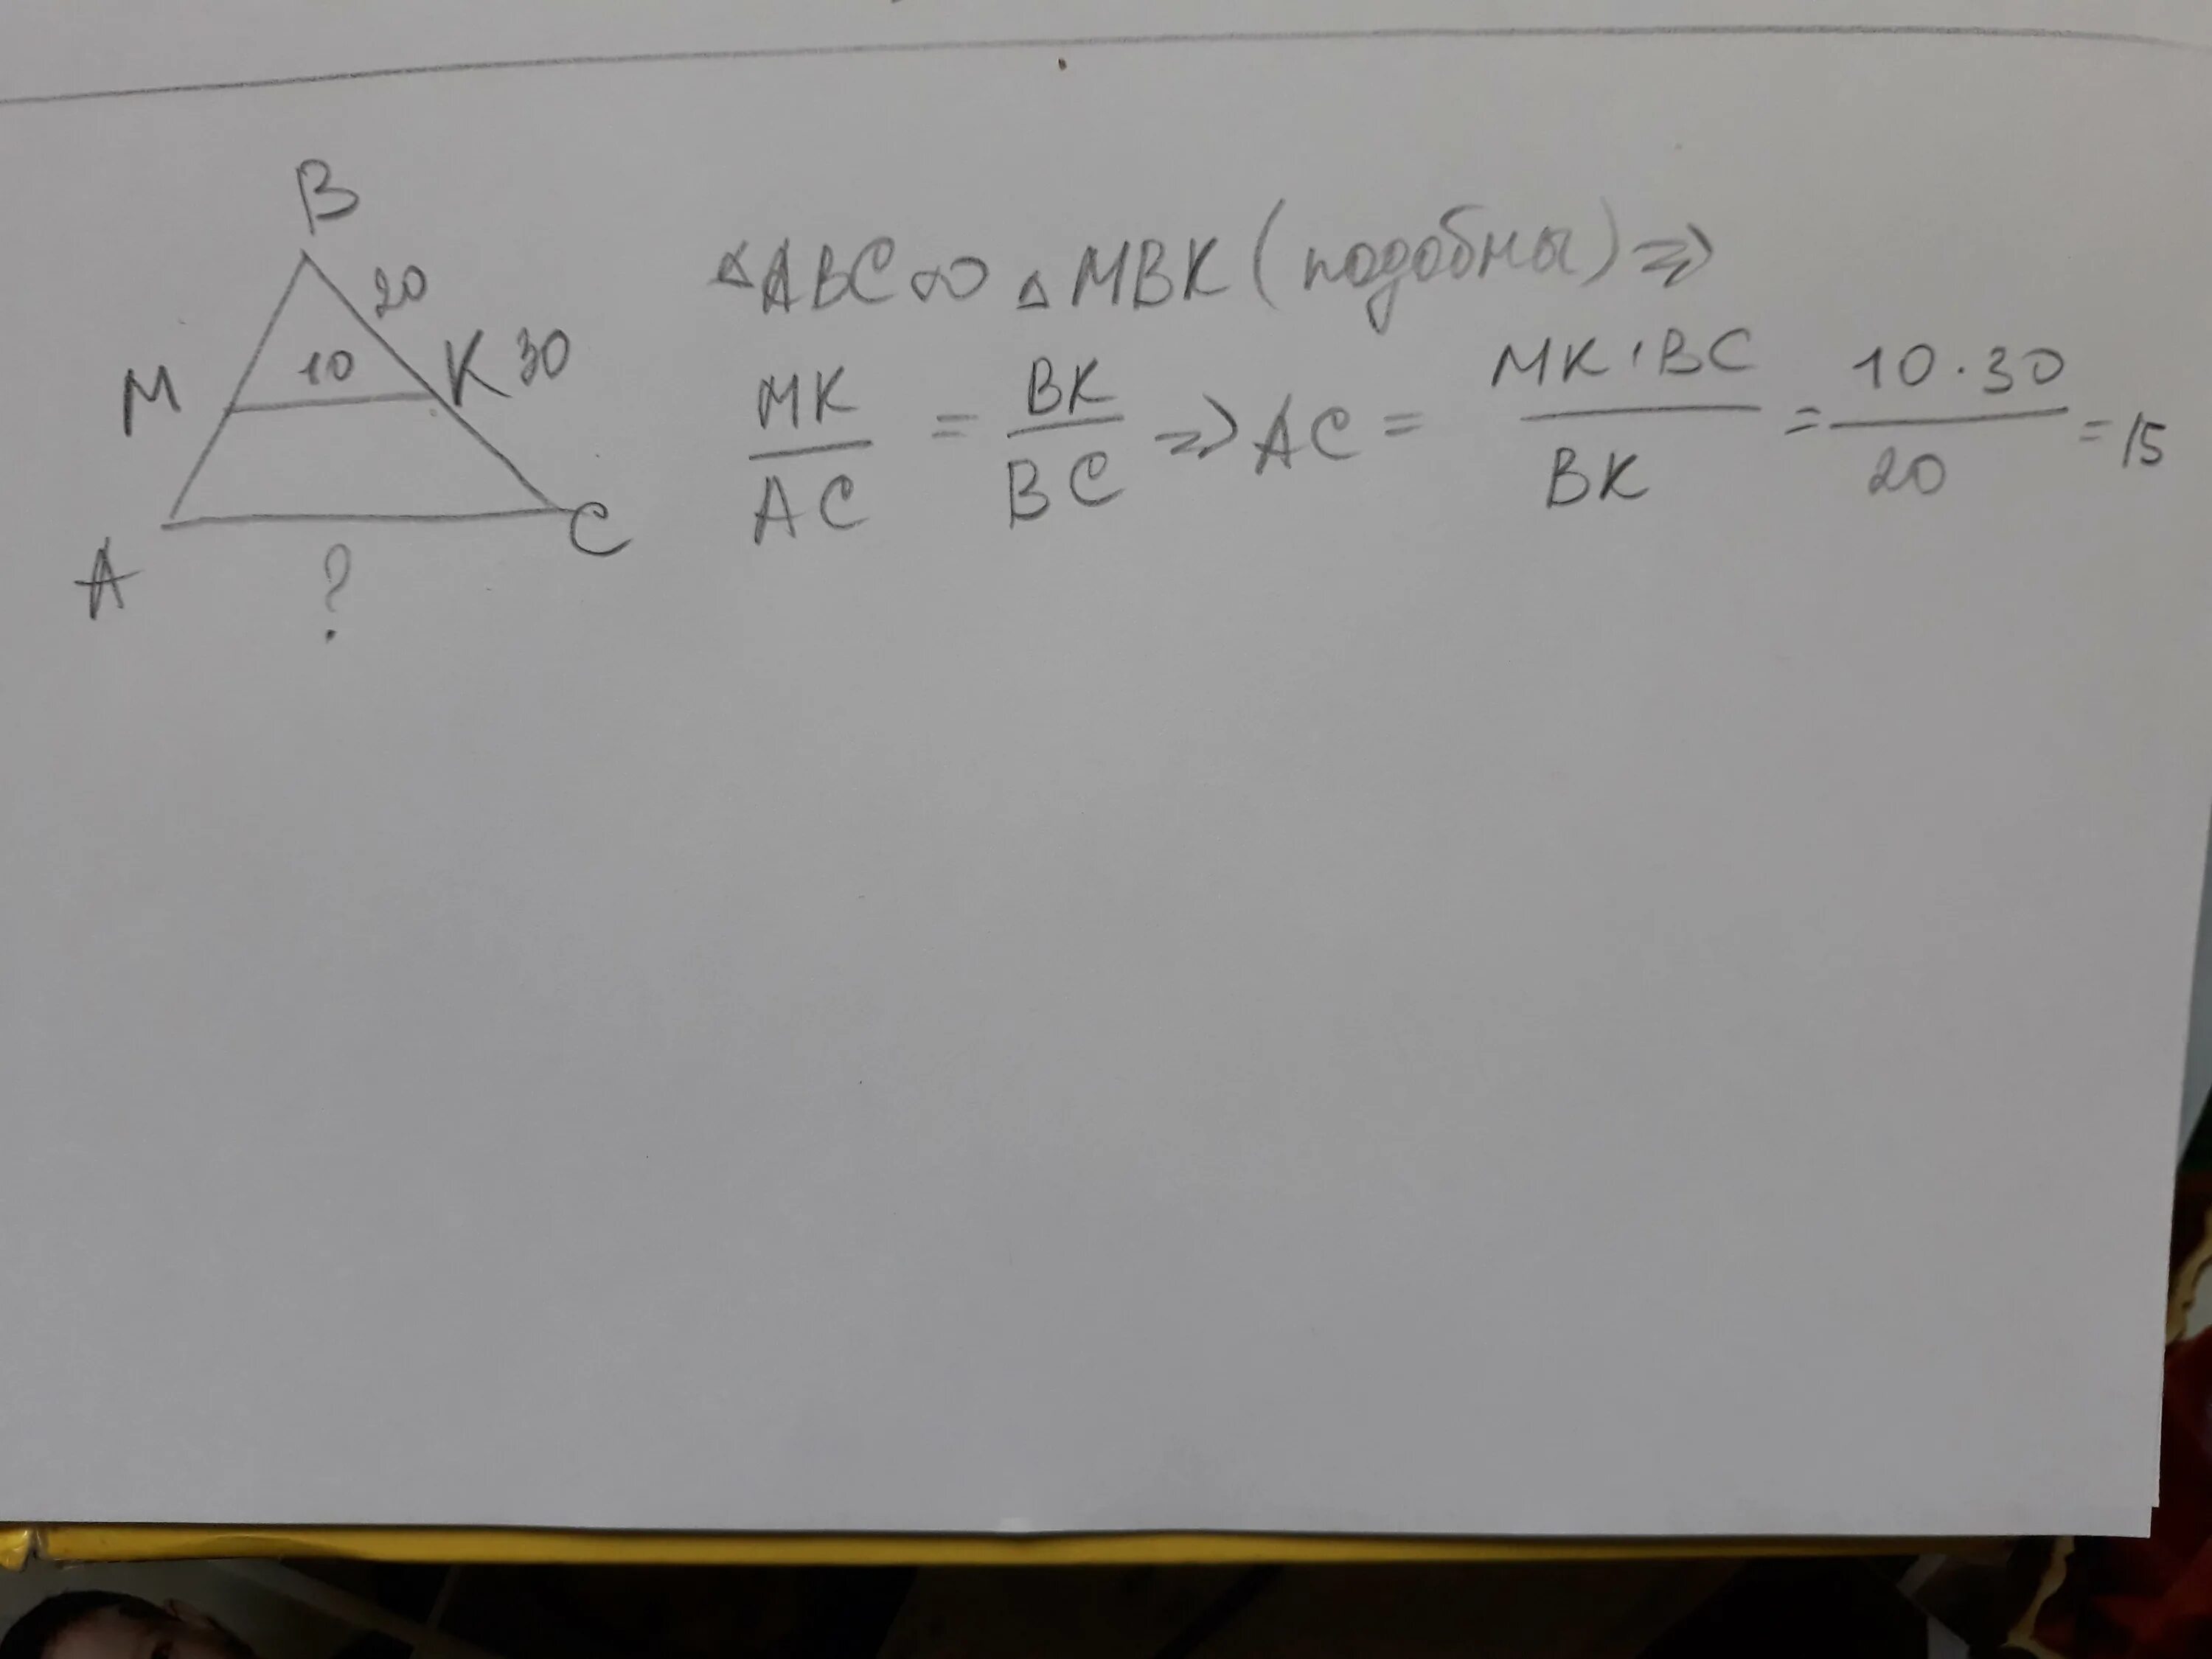 B
20
10
M
K 30
A
C
?
△ABC ∾ △MBK (подобны) ⇒
MK/AC = BK/BC ⇒ AC = MK·BC/BK = 10·30/20 = 15